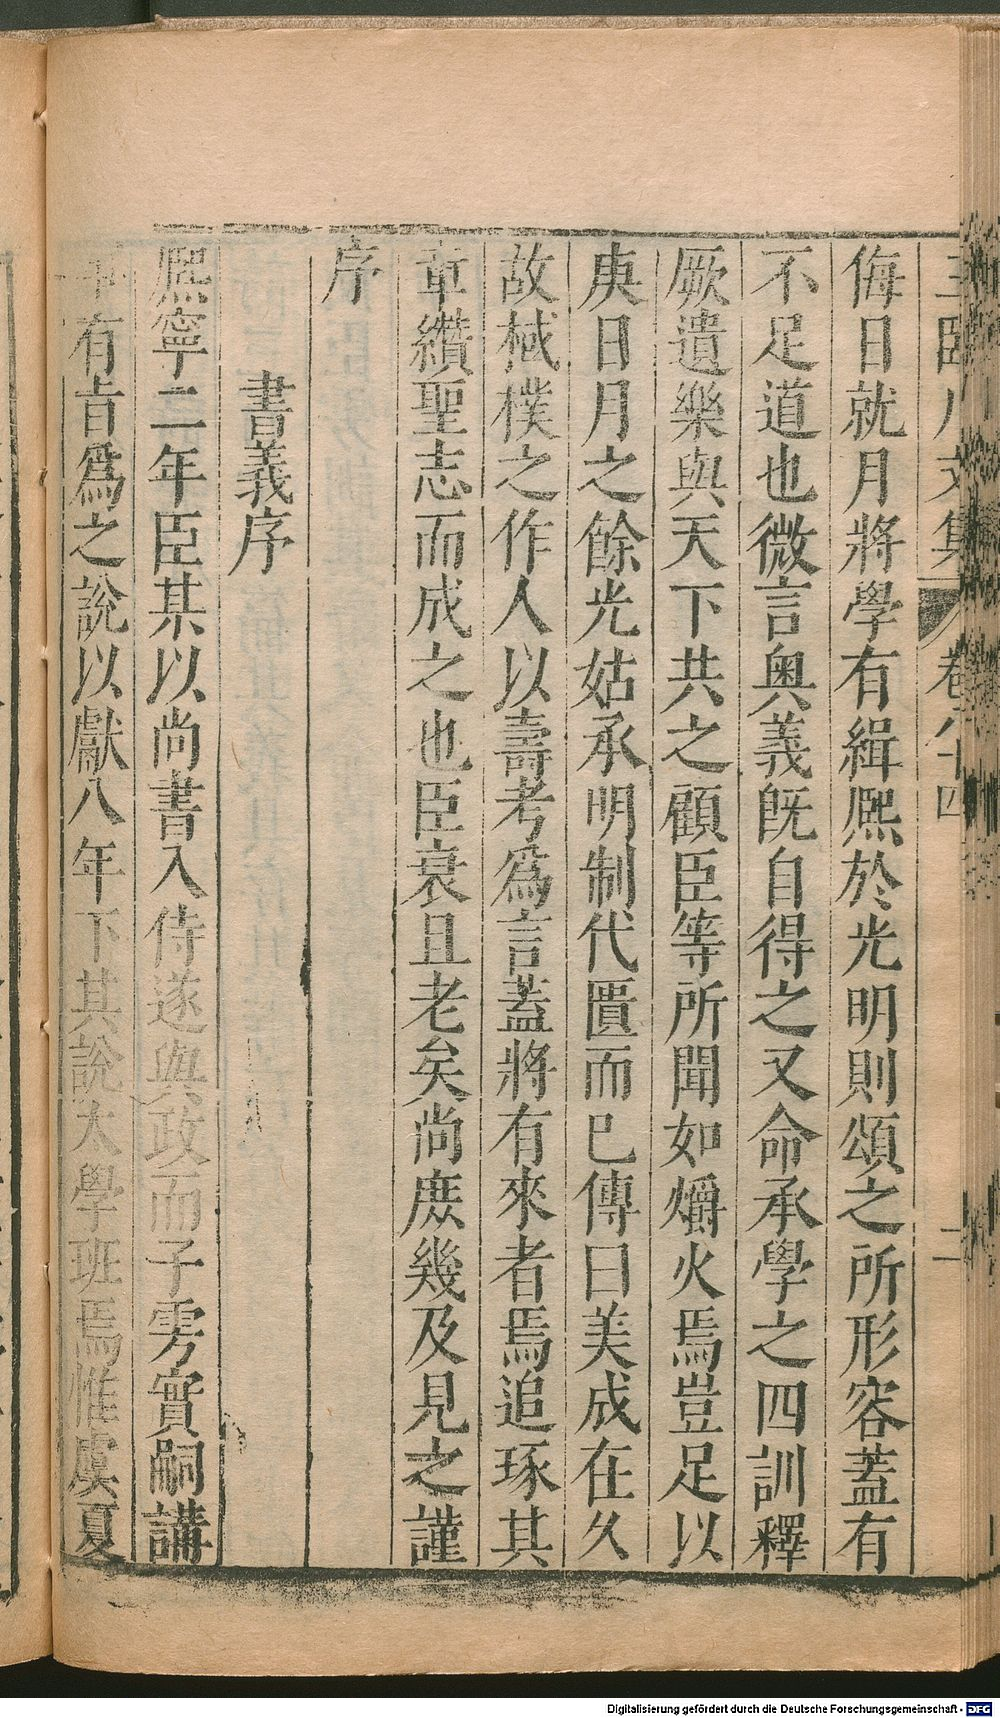 王臨川文集 卷八十四 二
侮日就月將學有緝熈於光明則頌之所形容蓋有
不足道也微言奥義旣自得之又命承學之四訓釋
厥遺樂與天下共之顧臣等所聞如爝火焉豈足以
庚日月之餘光姑承明制代匱而已傳曰美成在久
故棫樸之作人以壽考爲言蓋將有來者焉追琢其
章纘聖志而成之也臣衰且老矣尚庶幾及見之謹
序
書義序
熈寧二年臣某以尚書入侍遂與政而子雱實嗣講
有旨爲之說以獻八年下其說太學班焉惟虞夏
Digitalisierung gefördert durch die Deutsche Forschungsgemeinschaft - DFG